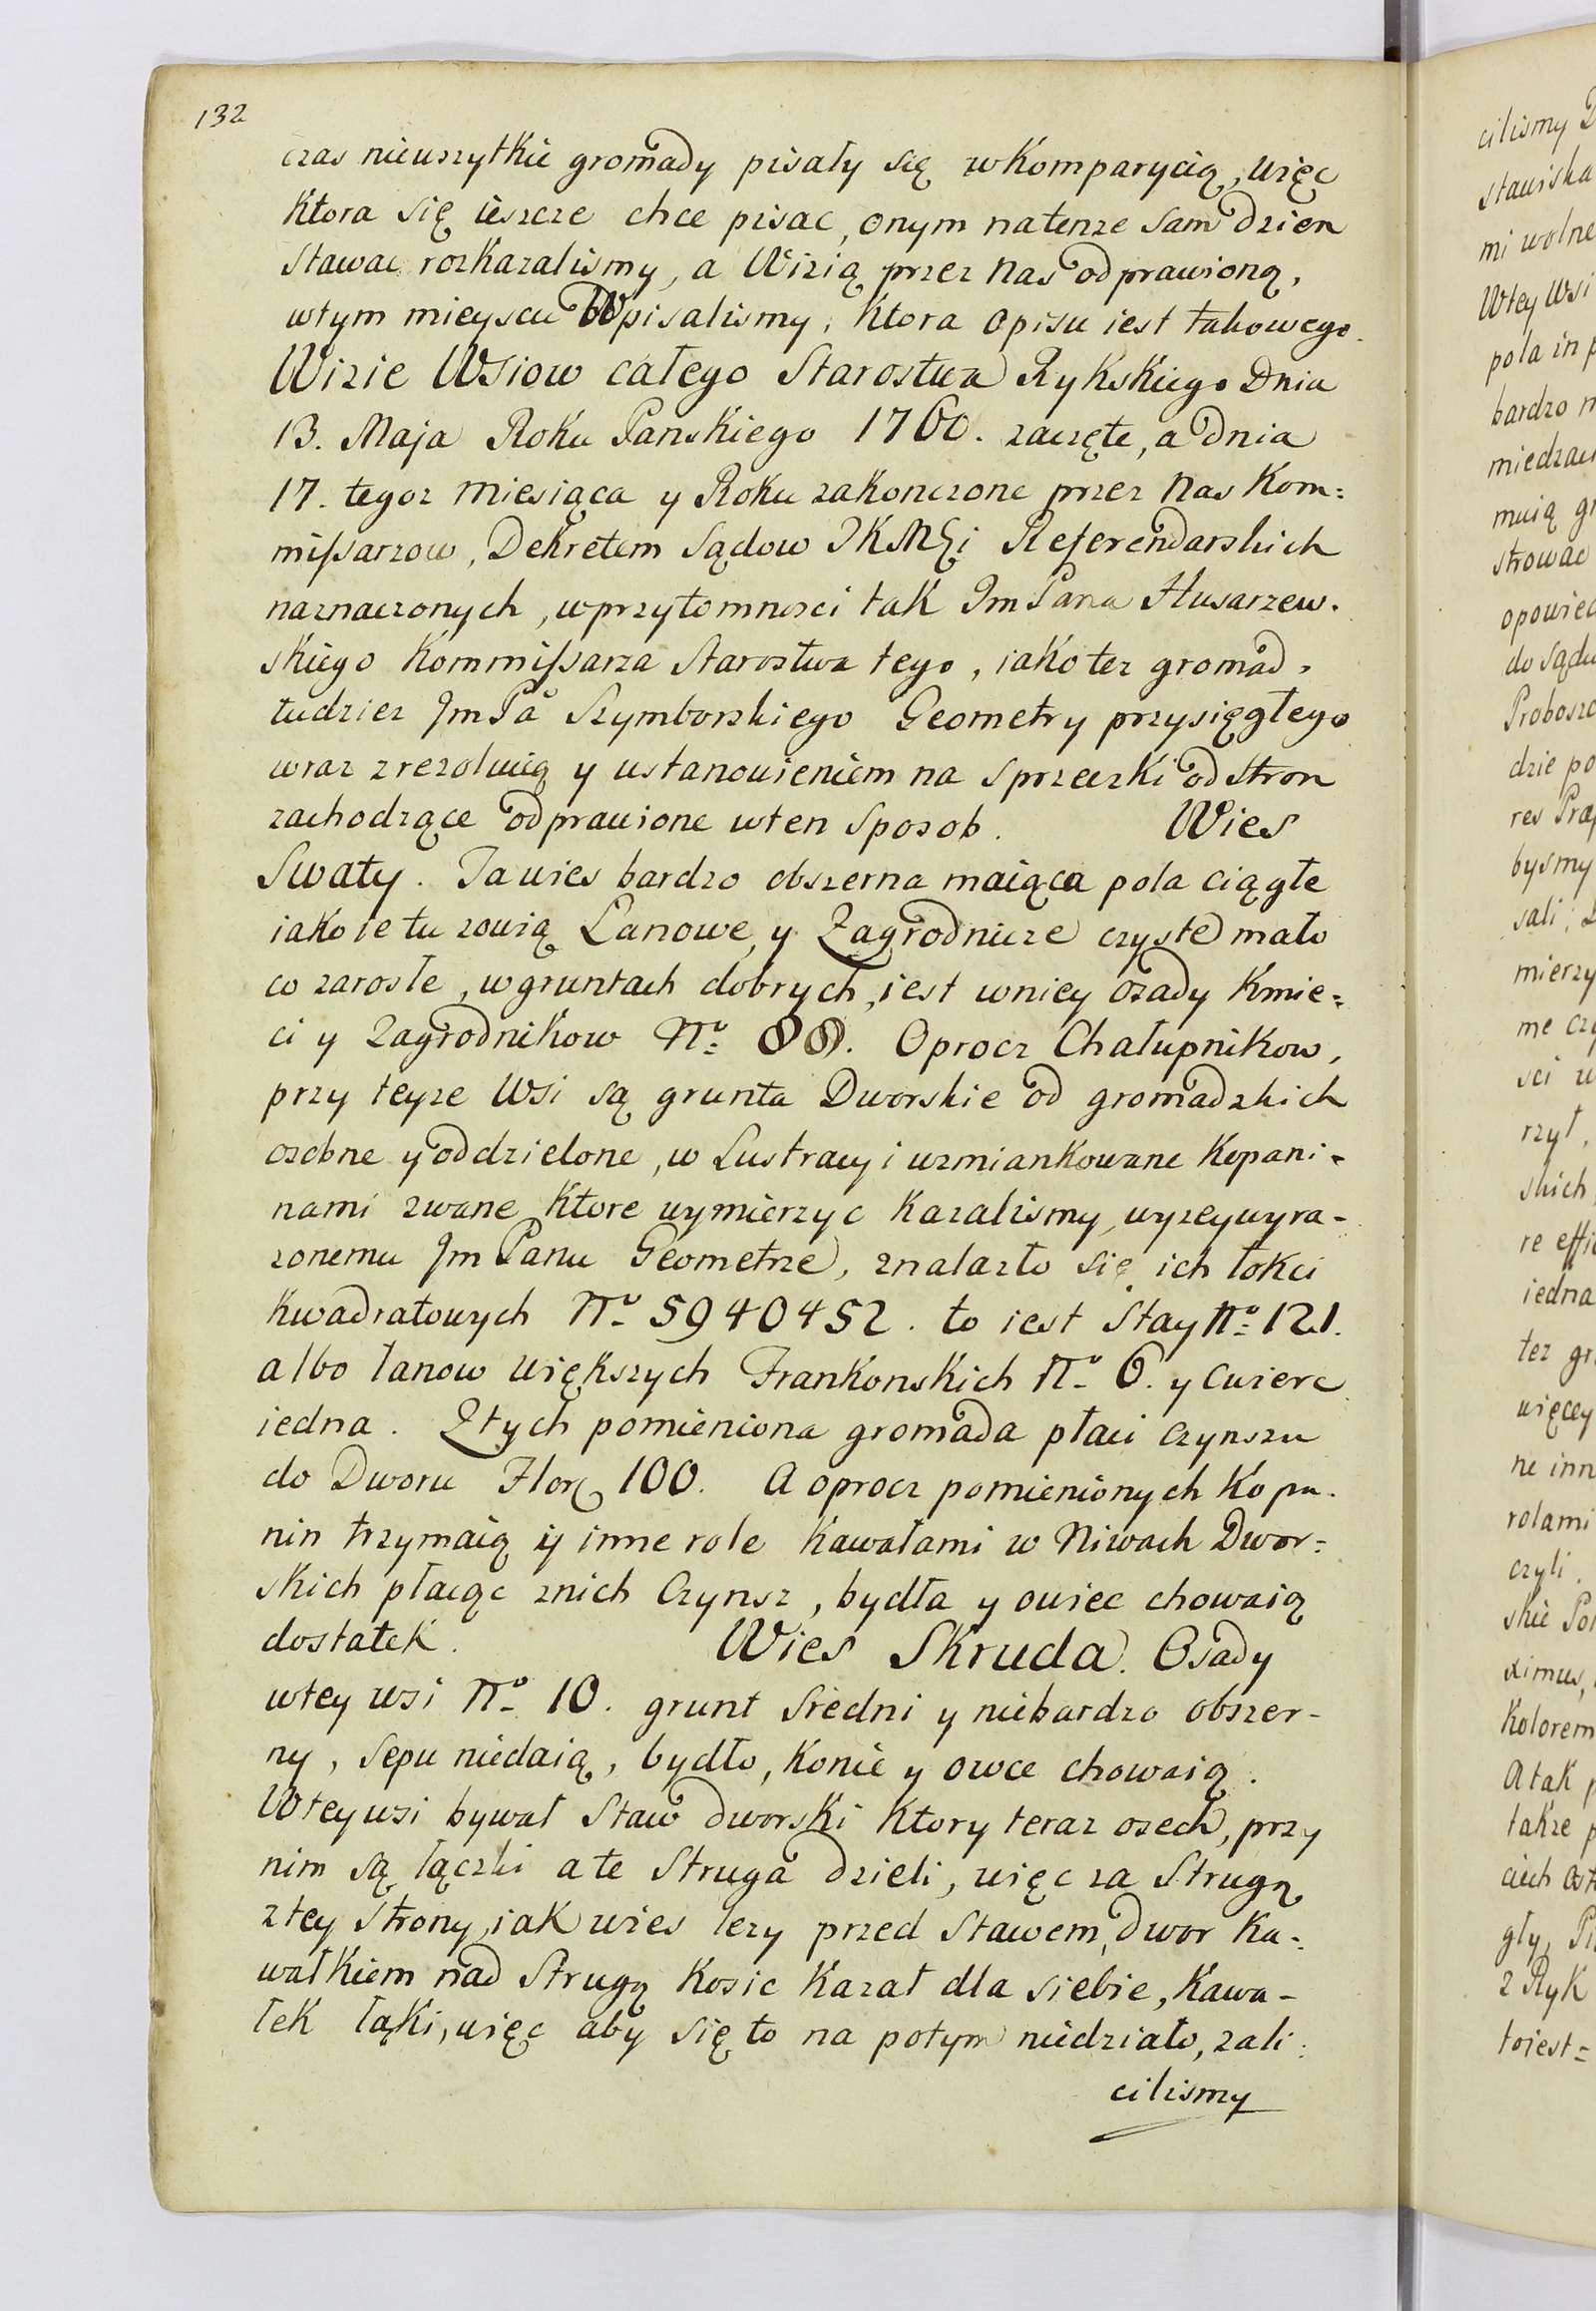 132
czas niewszytkie gromady pisały się wKomparycią, więc
Ktora się ieszcze chce pisac, onym natenze sam dzien
stawac rozkazalismy, a Wizią przez nas odprawioną,
wtym mieyscu Wpisalismy, Ktora opisu iest takowego.
Wizie Wsiow całego Starostwa Rykskiego Dnia
13. Maja Roku Panskiego 1760. zaczęte, a dnia
17. tegoz miesiąca y Roku zakonczone przez nas Kom=
missarzow, Dekretem Sądow JKMCi Referendarskich
naznaczonych, wprzytomnosci tak ImPana Husarzew.
skiego Kommissarza Starostwa tego, iako tez gromad,
tudziez JmPa Szymborskiego Geometry przysięgłego
wraz zrezolucią y ustanowieniem na sprzeczki od stron
zachodzące odprawione wten sposob. Wies
Swaty. Ta wies bardzo obszerna maiąca pola ciągłe
iako ie tu zowią Lanowe, y Zagrodnicze czyste mało
co zarosłe, wgruntach dobrych, iest wniey osady Kmie=
ci y Zagrodnikow No 88. Oprocz Chałupnikow,
przy teyze Wsi są grunta Dworskie od gromadzkich
osobne y oddzielone, w Lustracyi wzmiankowane Kopani=
nami zwane Ktore wymierzyc Kazalismy, wyzeywyra-
zonemu Jm Panu Geometrze, znalazło się ich łokci
Kwadratowych No 5940452. to iest Stay No 121.
albo łanow większych Frankonskich No 6. y cwierc
iedna. Ztych pomieniona gromada płaci czynszu
do Dworu Flor 100. A oprocz pomienionych Kopa.
nin trzymaią y inne role Kawałami w Niwach Dwor=
skich płacąc znich Czynsz, bydła y owiec chowaią
dostatek. Wies Skruda. Osady
wtey wsi No 10. grunt sredni y niebardzo obszer-
ny, sepu niedaią, bydło, Konie y owce chowaią.
Wtey wsi bywał Staw dworski Ktory teraz osech, przy
nim są łączki a te Struga dzieli, więc za Strugą
ztey strony, iak wies lezy przed Stawem, dwor Ka-
wałkiem nad Strugą Kosic Kazał dla siebie, Kawa-
łek łąki, więc aby się to na potym niedziało, zali:
cilismy
cilismy
stawiska
mi wolne
Wtey Wsi
pola in p
bardzo n
miedzac
muią gr
strowac
opowied
do Sądu
Probosz
dzie po
res Præ
bysmy
sali,
mierzy
me czy
sci w
rzył,
skich
re effi
iedna
tez gr
więcey
ne inn
rolami
czyli.
skie Po
ximus,
Kolorem
A tak p
takze p
ciech ost
gły, Pi
z Ryk
toiest=